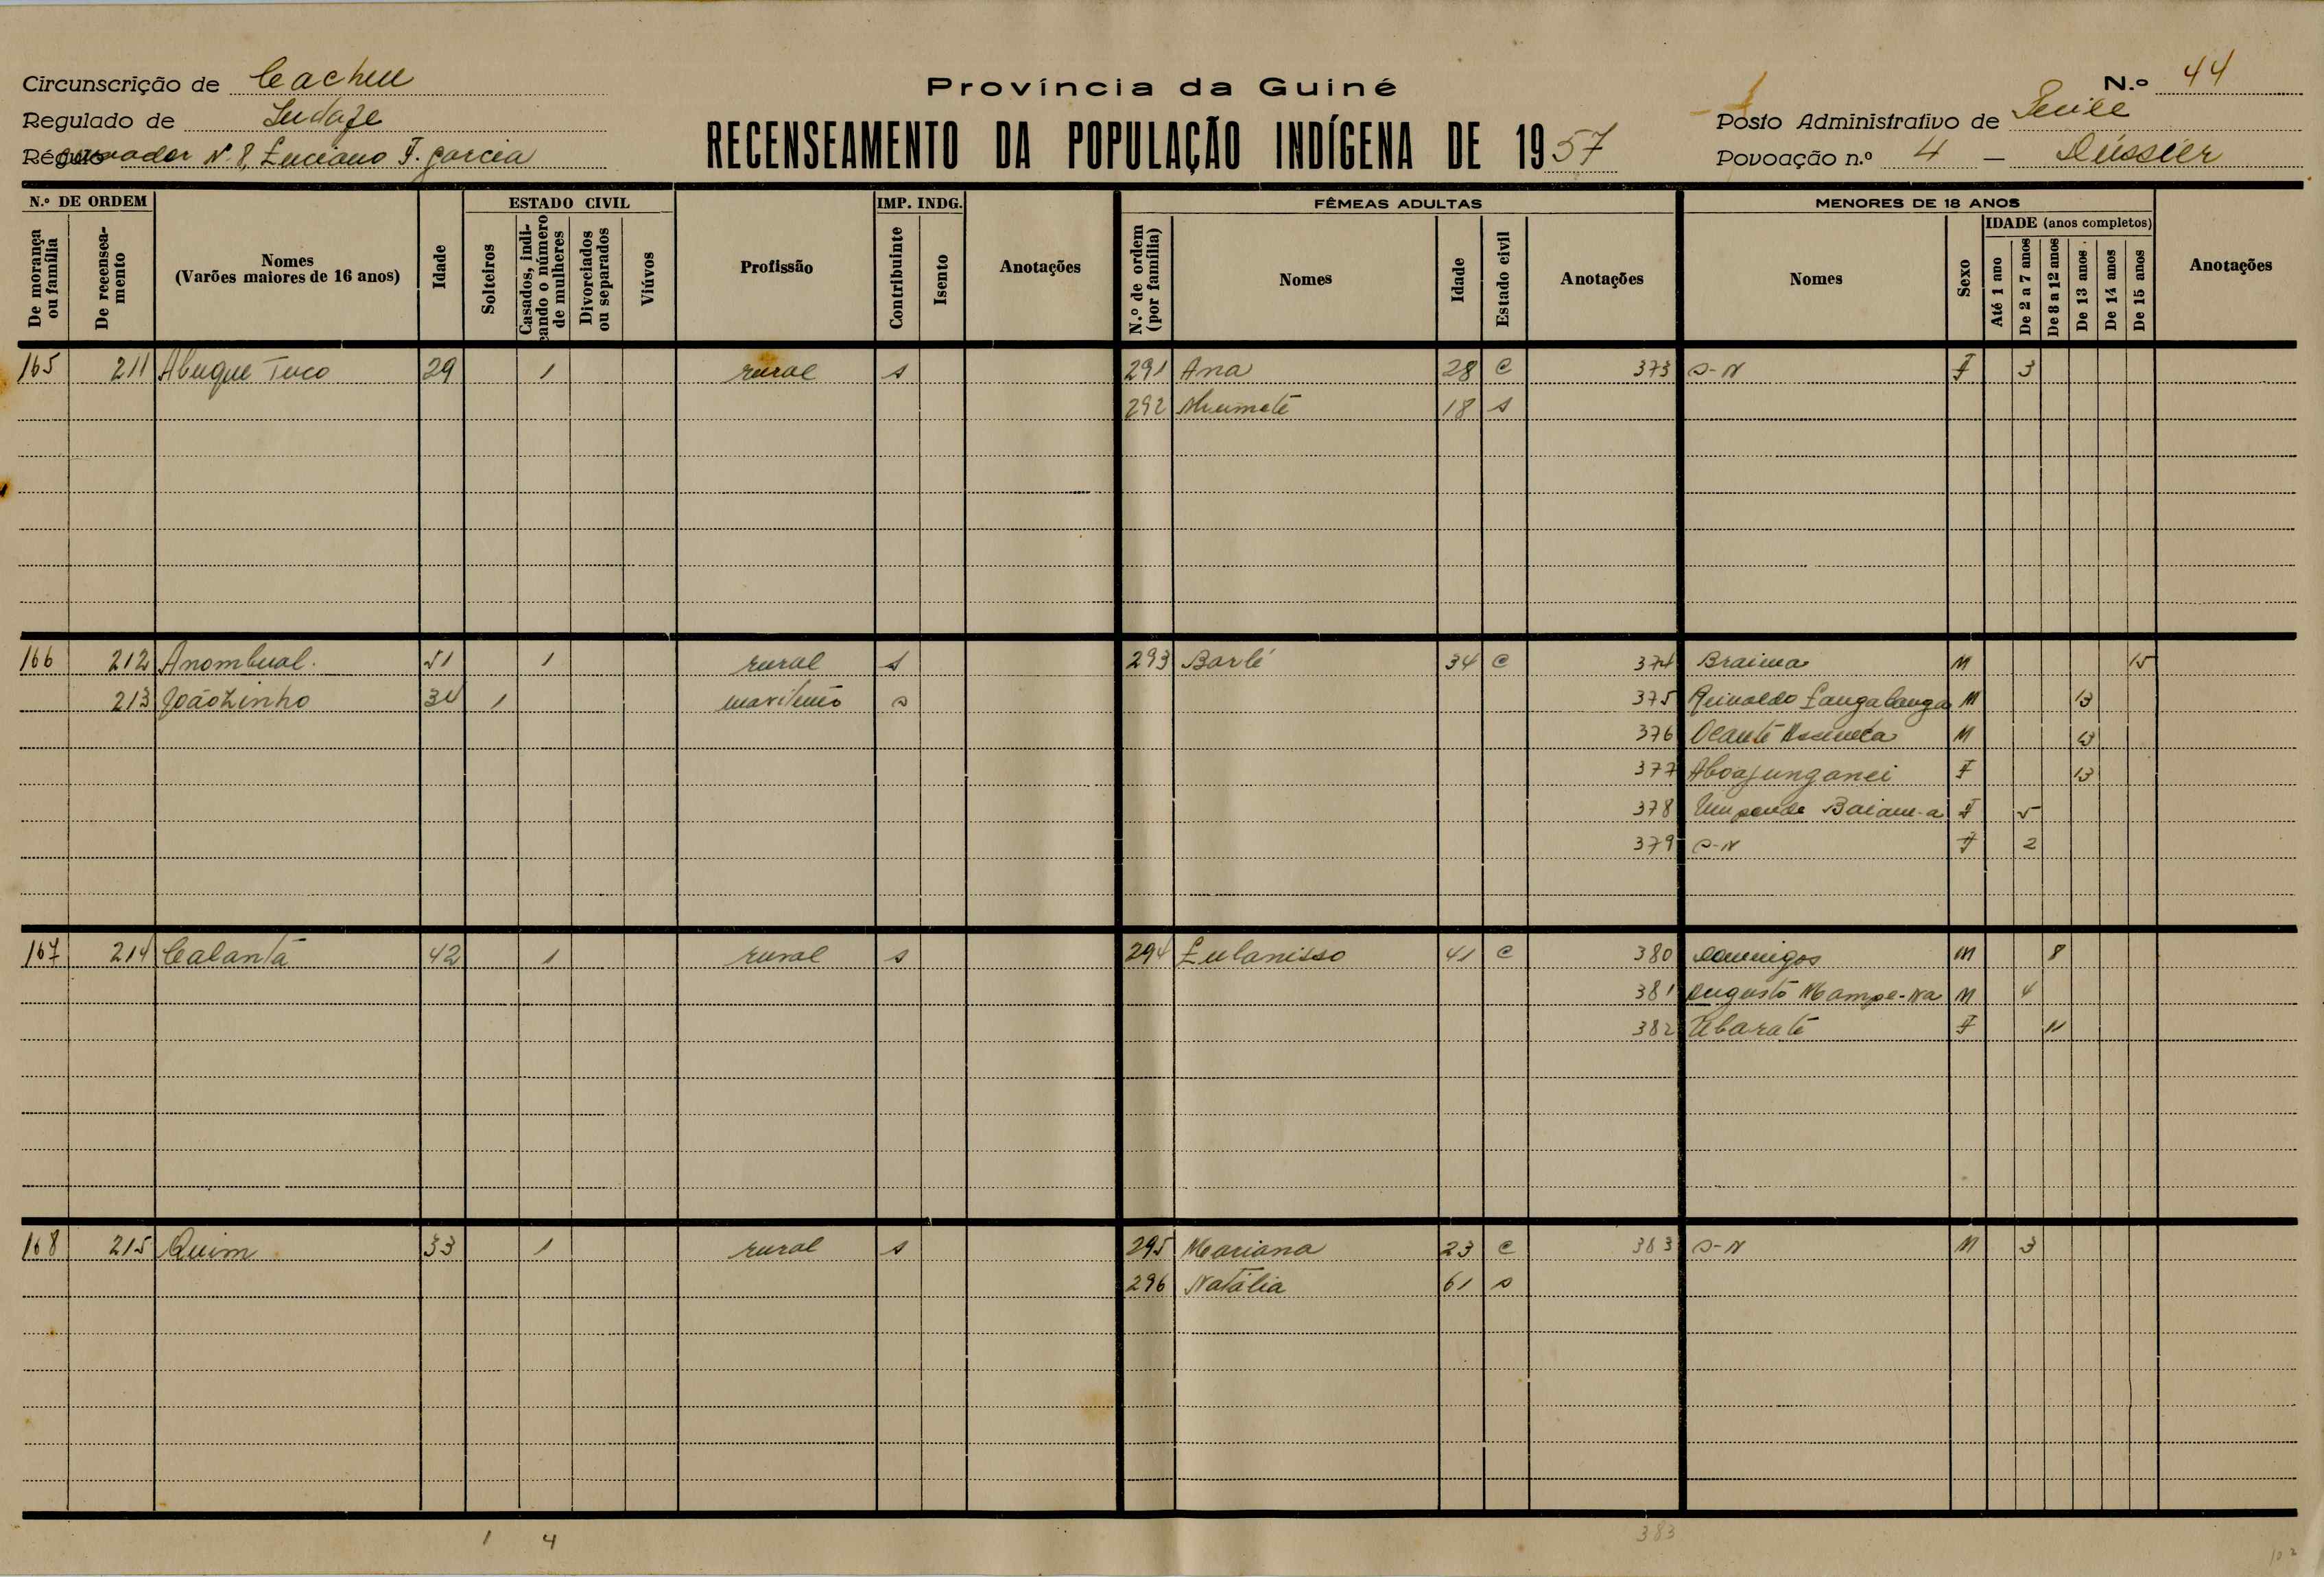 Circunscrição de Cacheu
Província da Guiné
N.º 44
Regulado de
Posto Administrativo de
N. 8, Luciano F. Garcia
RECENSEAMENTO DA POPULAÇÃO INDÍGENA DE 1957
Povoação n.º 4 –
N.º DE ORDEM
De morança ou família
De recenseamento
Nomes
(Varões maiores de 16 anos)
Idade
ESTADO CIVIL
Solteiros
Casados, indicando o número de mulheres
Divorciados ou separados
Viúvos
Profissão
IMP. INDG.
Contribuinte
Isento
Anotações
FÊMEAS ADULTAS
N.º de ordem (por família)
Nomes
Idade
Estado civil
Anotações
MENORES DE 18 ANOS
Nomes
Sexo
IDADE (anos completos)
Até 1 ano
De 2 a 7 anos
De 8 a 12 anos
De 13 anos
De 14 anos
De 15 anos
Anotações
165 211 Abuque Tuco 29 1 rural s 291 Ana 28 C 373 S-N F 3
292 18 s
166 212 Anombual. 51 1 rural s 293 Barlé 34 C 374 Braima M 15
213 Joãozinho 34 1 maritimo s 375 Reinaldo M 13
376 M 13
377 F 13
378 F 5
379 S-N F 2
167 214 Calantá 42 1 rural s 294 Lulanisso 41 C 380 Domingos M 8
381 Augusto Mampa-Na M 4
382 Ubaraté F 11
168 215 Quim 33 1 rural s 295 Mariana 23 C 383 S-N M 3
296 Natália 61 s
1 4 383